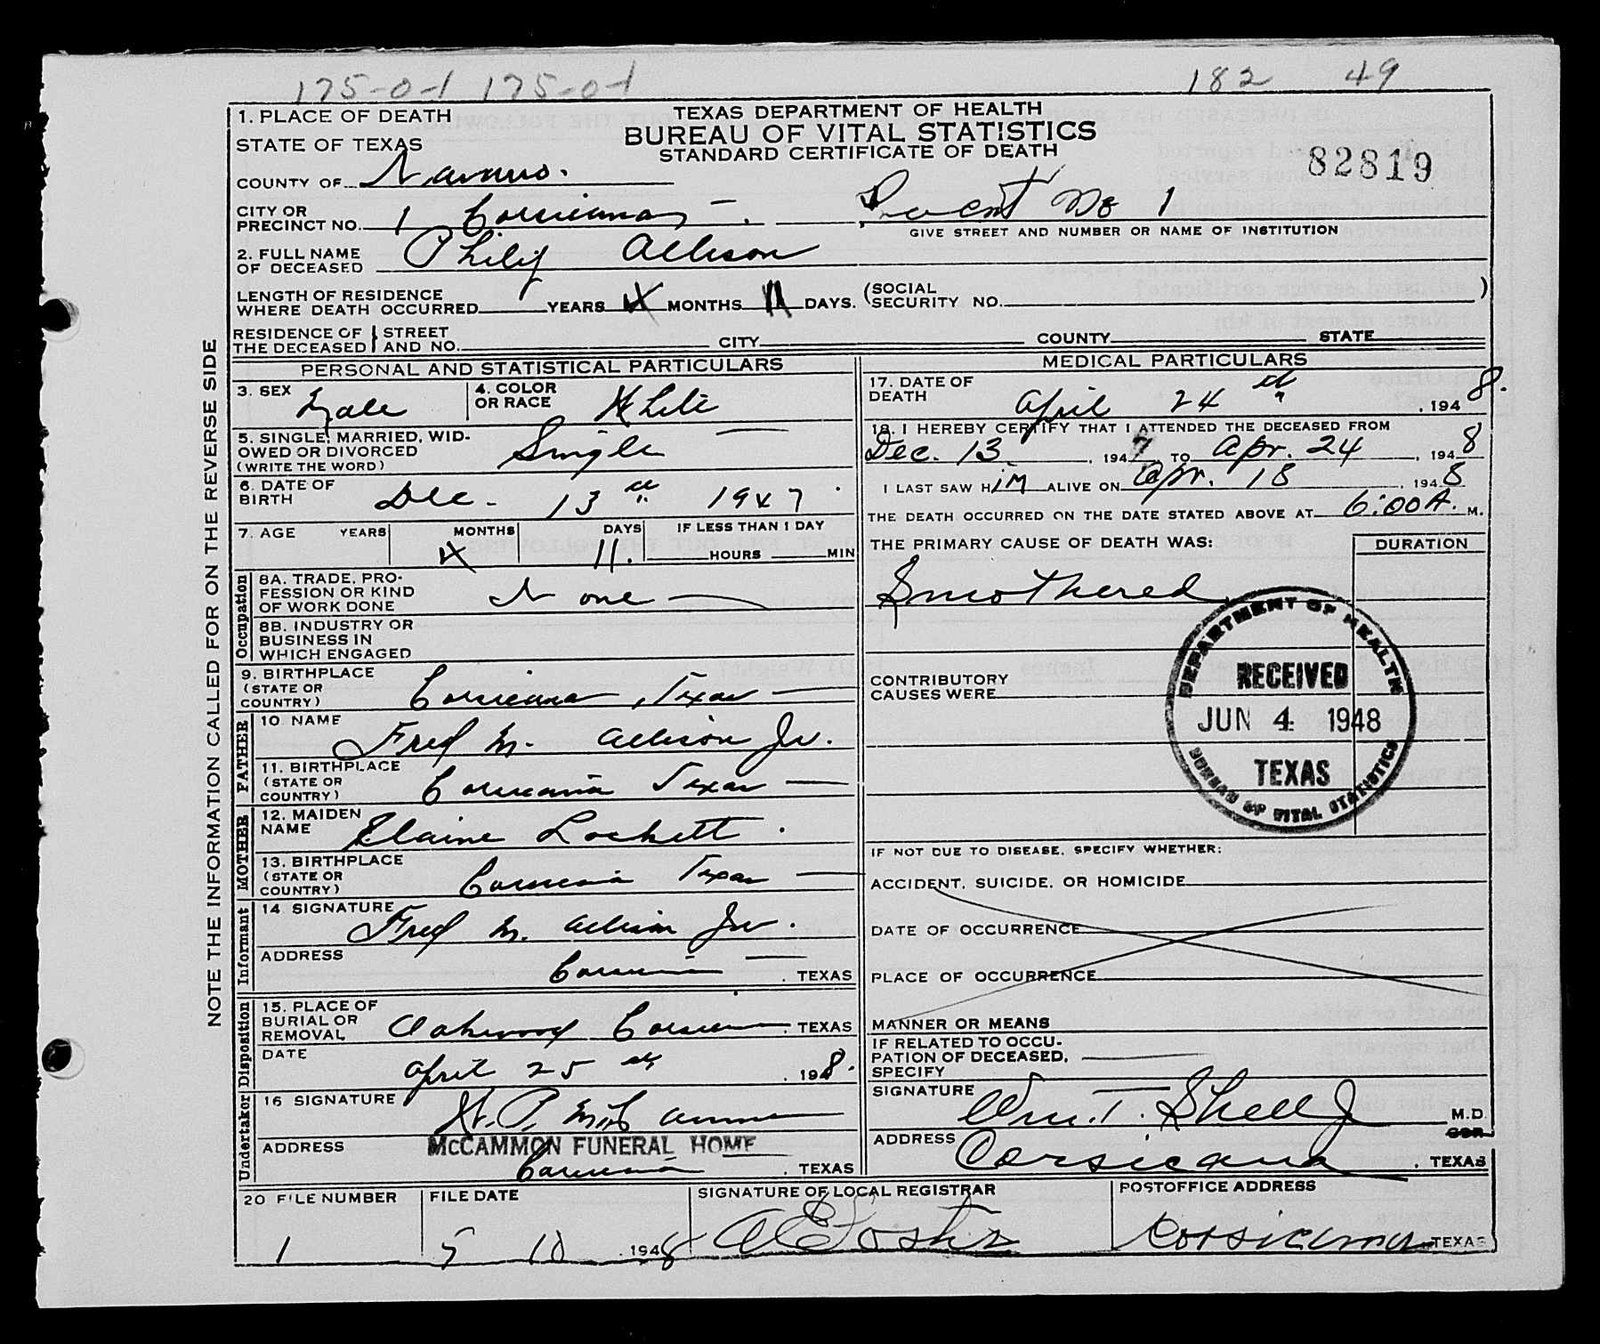 175-0-1 175-0-1 182 49
1. PLACE OF DEATH
STATE OF TEXAS
TEXAS DEPARTMENT OF HEALTH
BUREAU OF VITAL STATISTICS
STANDARD CERTIFICATE OF DEATH
82819
COUNTY OF Navarro.
CITY OR
PRECINCT NO. 1 Corsicana, Precent No 1
GIVE STREET AND NUMBER OR NAME OF INSTITUTION
2. FULL NAME
OF DECEASED Philip Allison
LENGTH OF RESIDENCE
WHERE DEATH OCCURRED YEARS 4 MONTHS 11 DAYS. (SOCIAL
SECURITY NO. )
RESIDENCE OF
THE DECEASED } STREET
AND NO. CITY COUNTY STATE
NOTE THE INFORMATION CALLED FOR ON THE REVERSE SIDE
PERSONAL AND STATISTICAL PARTICULARS
3. SEX Male
4. COLOR
OR RACE White
5. SINGLE, MARRIED, WID-
OWED OR DIVORCED
(WRITE THE WORD) Single
6. DATE OF
BIRTH Dec. 13 th 1947
7. AGE YEARS MONTHS DAYS IF LESS THAN 1 DAY
4 11. HOURS MIN
Occupation
8A. TRADE, PRO-
FESSION OR KIND
OF WORK DONE None
8B. INDUSTRY OR
BUSINESS IN
WHICH ENGAGED
9. BIRTHPLACE
(STATE OR
COUNTRY) Corsicana, Texas
FATHER
10 NAME Fred M. Allison Jr.
11. BIRTHPLACE
(STATE OR
COUNTRY) Corsicana Texas
MOTHER
12. MAIDEN
NAME Elaine Lockett.
13. BIRTHPLACE
(STATE OR
COUNTRY) Corsicana Texas
Informant
14 SIGNATURE Fred M. Allison Jr.
ADDRESS Corsicana, TEXAS
Disposition
15. PLACE OF
BURIAL OR
REMOVAL Oakwood Corsicana TEXAS
DATE April 25 th, 1948.
Undertaker
16 SIGNATURE McCammon
ADDRESS McCAMMON FUNERAL HOME
Corsicana, TEXAS
MEDICAL PARTICULARS
17. DATE OF
DEATH April 24 th, 1948.
18. I HEREBY CERTIFY THAT I ATTENDED THE DECEASED FROM
Dec. 13, 1947 TO Apr. 24, 1948
I LAST SAW HIM ALIVE ON Apr. 18 1948
THE DEATH OCCURRED ON THE DATE STATED ABOVE AT 6:00 A. M.
THE PRIMARY CAUSE OF DEATH WAS: DURATION
Smothered
DEPARTMENT OF HEALTH
RECEIVED
JUN 4 1948
TEXAS
BUREAU OF VITAL STATISTICS
CONTRIBUTORY
CAUSES WERE
IF NOT DUE TO DISEASE, SPECIFY WHETHER:
ACCIDENT, SUICIDE, OR HOMICIDE
DATE OF OCCURRENCE
PLACE OF OCCURRENCE
MANNER OR MEANS
IF RELATED TO OCCU-
PATION OF DECEASED,
SPECIFY
SIGNATURE Wm. T. Shell Jr M.D.
COR.
ADDRESS Corsicana, TEXAS
20 FILE NUMBER FILE DATE SIGNATURE OF LOCAL REGISTRAR POSTOFFICE ADDRESS
1 5 10 1948 Corsicana TEXAS